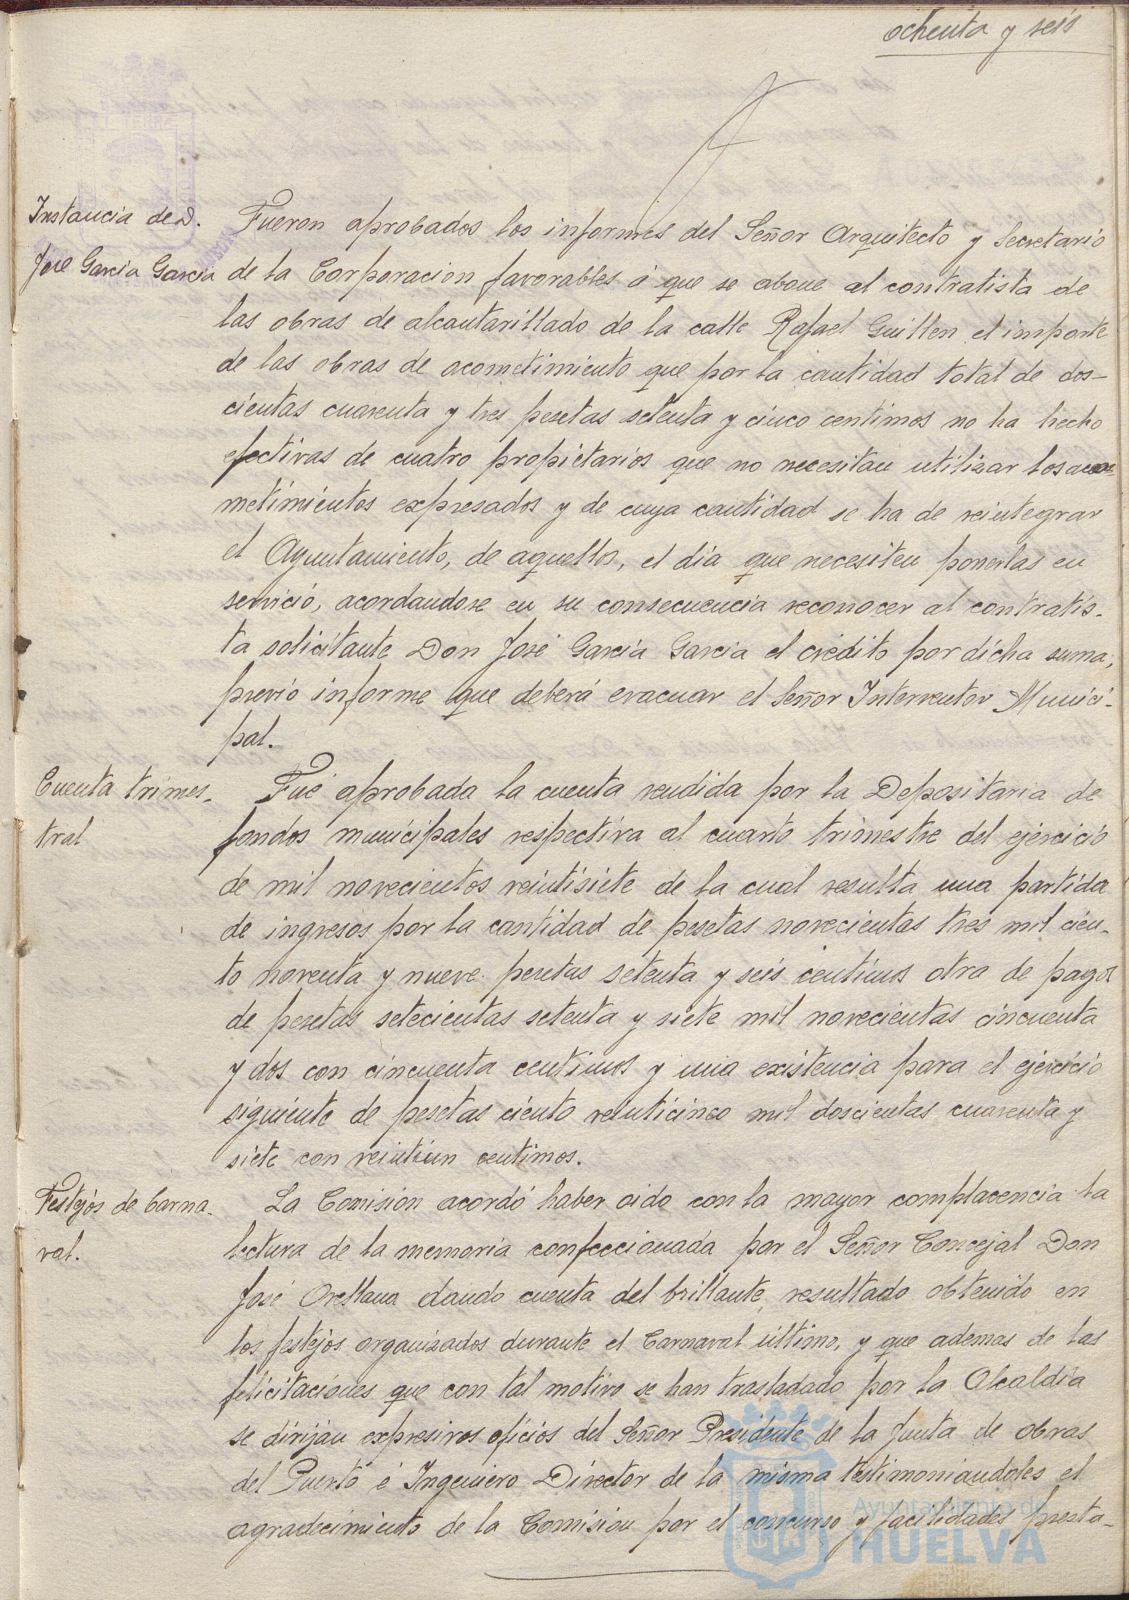 ochenta y seis
Instancia de D.
José García García
Fueron aprobados los informes del Señor Arquitecto y Secretario
de la Corporacion favorables á que se abone al contratista de
las obras de alcantarillado de la calle Rafael Guillen el importe
de las obras de acometimiento que por la cantidad total de dos-
cientas cuarenta y tres pesetas setenta y cinco centimos no ha hecho
efectivas de cuatro propietarios que no necesitan utilizar los aco-
metimientos expresados y de cuya cantidad se ha de reintegrar
el Ayuntamiento, de aquellos, el día que necesiten ponerlas en
servicio, acordandose en su consecuencia reconocer al contratis-
ta solicitante Don José García García el crédito por dicha suma,
previo informe que deberá evacuar el Señor Interventor Munici-
pal.
Cuenta trimes-
tral
Fué aprobada la cuenta rendida por la Depositaria de
fondos municipales respectiva al cuarto trimestre del ejercicio
de mil novecientos veintisiete de la cual resulta una partida
de ingresos por la cantidad de pesetas novecientas tres mil cien-
to noventa y nueve pesetas setenta y seis centimos otra de pagos
de pesetas setecientas setenta y siete mil novecientas cincuenta
y dos con cincuenta centimos y una existencia para el ejercicio
siguiente de pesetas ciento veinticinco mil doscientas cuarenta y
siete con veintiun centimos.
Festejos de Carna-
val.
La Comisión acordó haber oido con la mayor complacencia la
lectura de la memoria confeccionada por el Señor Concejal Don
José Orellana dando cuenta del brillante resultado obtenido en
los festejos organizados durante el Carnaval último, y que ademas de las
felicitaciones que con tal motivo se han trasladado por la Alcaldía
se dirijan expresivos oficios del Señor Presidente de la Junta de obras
del Puerto é Ingeniero Director de la misma testimoniandoles el
agradecimiento de la Comisión por el concurso y facilidades presta-
Ayuntamiento de
HUELVA